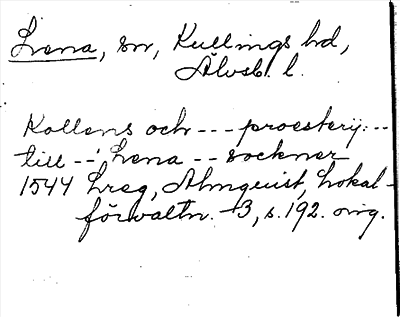 Lena, sn, Kullings hd,
Älvsb. l.
Kollens och --- proesterij: --
till --- Lena -- sockner
1544 Lreg, Almquist, Lokal-
förvaltn. -3, s. 192. orig.